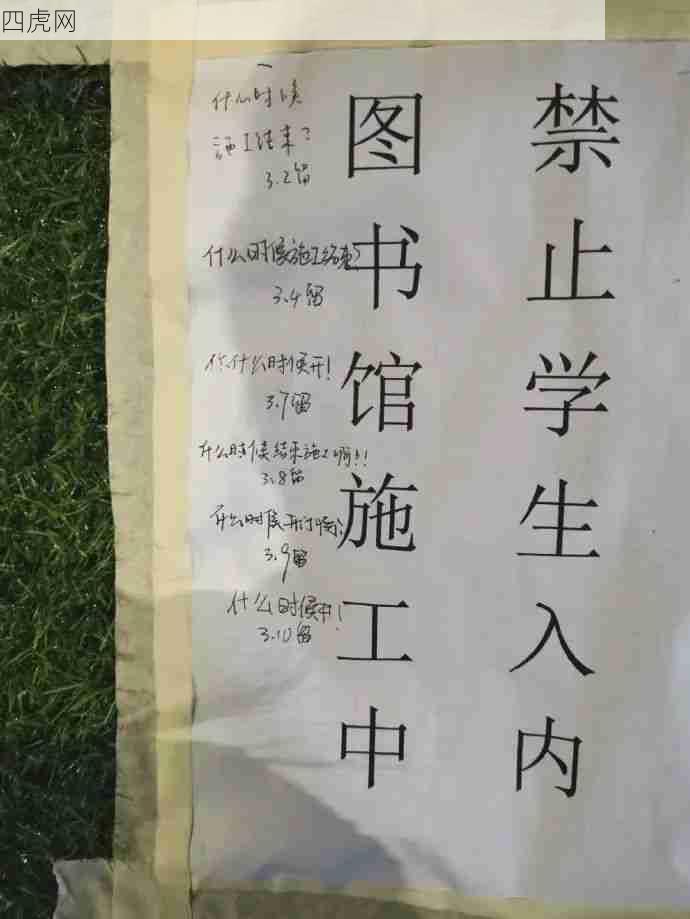 四虎网
图书馆施工中
禁止学生入内
什么时候
施工结束？
3.2留
什么时候施工结束？
3.4留
你什么时候开！
3.7留
什么时候结束施工啊！！
3.8留
什么时候开
3.9留
什么时候
3.10留